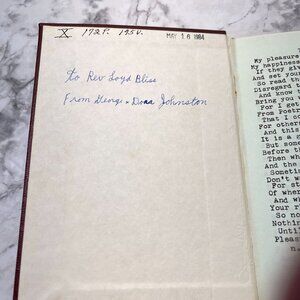 X
MAY 16 1984
to Rev Loyd Bliss
From George & Dona Johnston
My pleasure
My happiness
If they giv
And set your
So read th
Disregard t
And know t
Bring you
For I get
From Poetr
That I co
For other
And thi
It is a g
But some
Before t
Then wh
And the
Sometim
Don't w
For st
Of wher
And wh
Your r
So no
Nothin
Until
Pleas